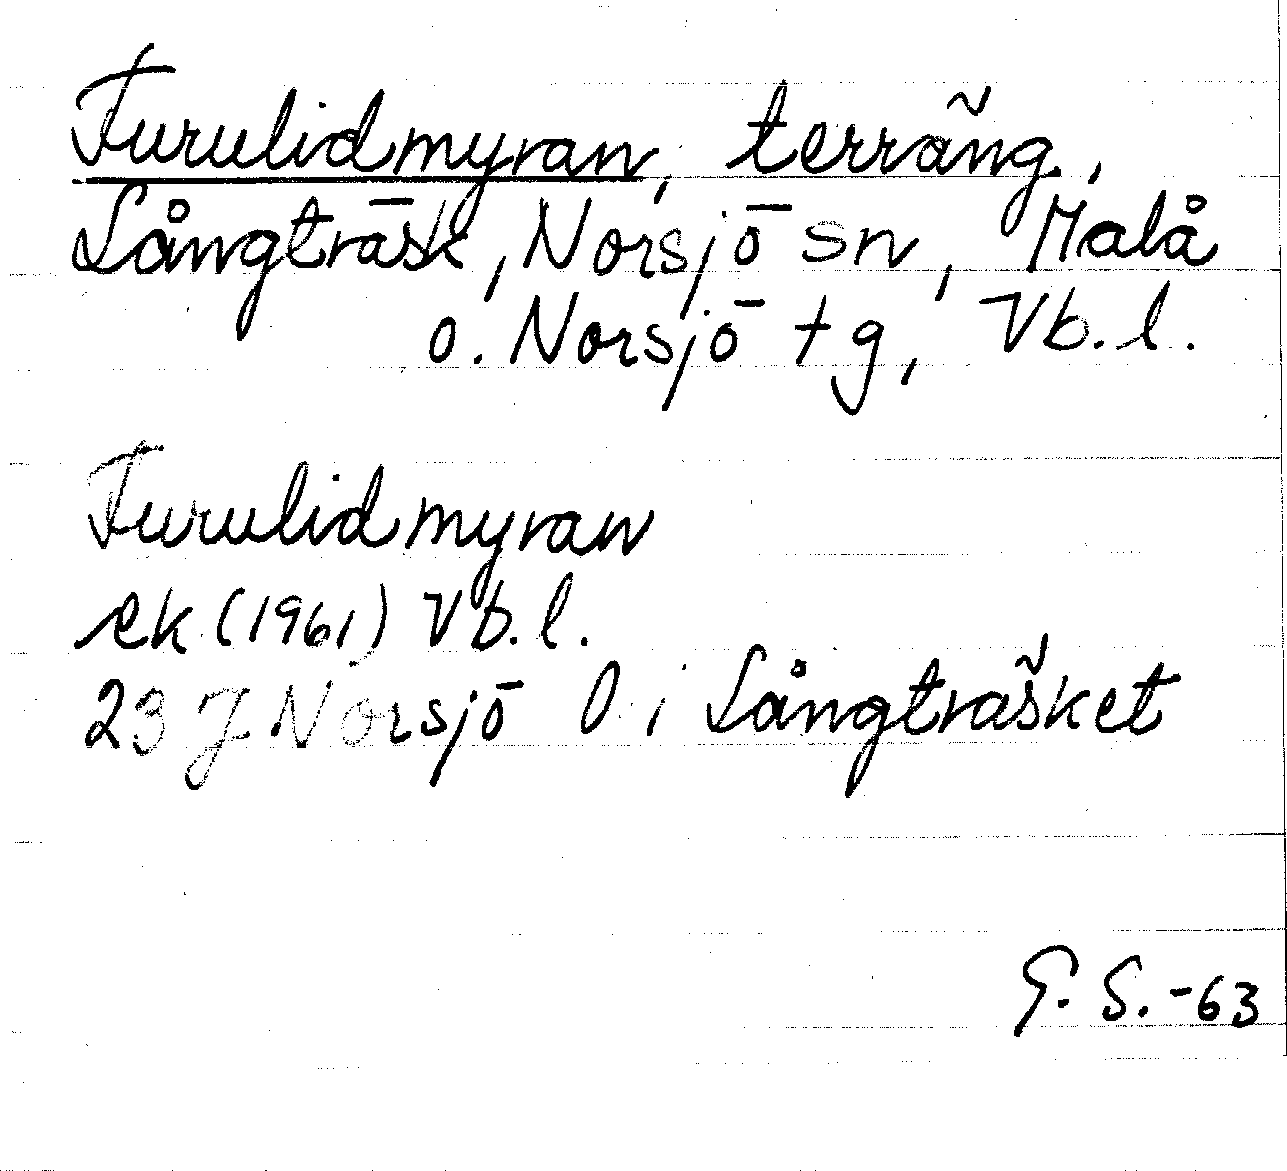 Furulidmyran, terräng,
Långträsk, Norsjö sn, Malå
o. Norsjö tg, Vb. l.
Furulidmyran
ek (1961) Vb. l.
23 J Norsjö O i Långträsket
G. S. -63